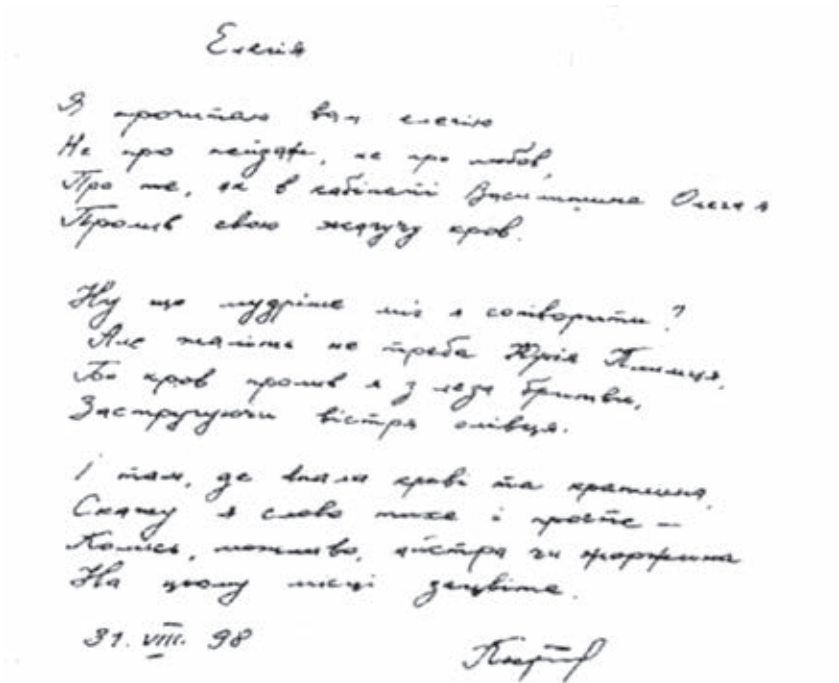 Елегія
Я прочитаю вам елегію
Не про пейзаж, не про любов,
Про те, як в кабінеті Василишина Олега я
Пролив свою жагучу кров.
Ну що мудріше міг я сотворити?
Але жаліть не треба Юрія
Бо кров пролив я з леза бритви,
Застругуючи вістря олівця.
І там, де впала крові та краплина,
Скажу я слово тихе і просте –
Колись, можливо, айстра чи жоржина
На цьому місці зацвіте.
31. VIII. 98